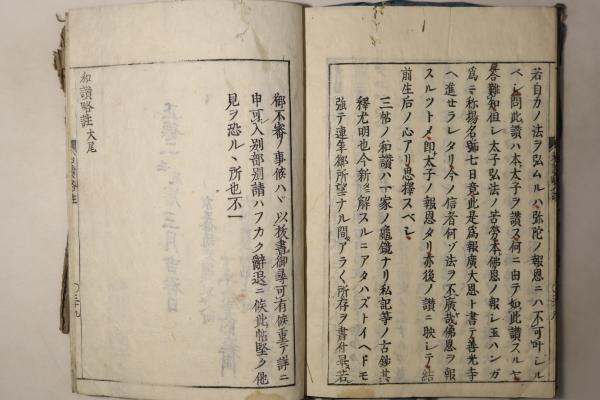 若自力ノ法ヲ弘ムルハ弥陀ノ報恩ニハ不可叶シル
ベシ問此讃ハ本太子ヲ讃ス何ニ由テ如此讃スルヤ
答難知但シ太子弘法ノ苦勞本佛恩ノ報シ玉ハンガ
爲ニ称揚名號七日竟此是爲報廣大恩ト書テ善光寺
ヘ進セラレタリ今ノ信者何ゾ法ヲ不廣哉佛恩ヲ報
スルツトメ即太子ノ報恩タリ亦後ノ讃ニ映シテ結
前生后ノ心アリ思擇スベシ
三帖ノ和讃ハ一家ノ龜鏡ナリ私記等ノ古鈔其
釋尤明也今新ニ解スルニアタハズトイヘドモ
強テ連年御所望ナル間アラ〱所存ヲ書什畢若
御不審ノ事候ハヽ以披書御尋可有候重テ詳ニ
申可入別部別請ハフカク辭退ニ候此帖堅ク他
見ヲ恐ルヽ所也不一
和讃略註大尾